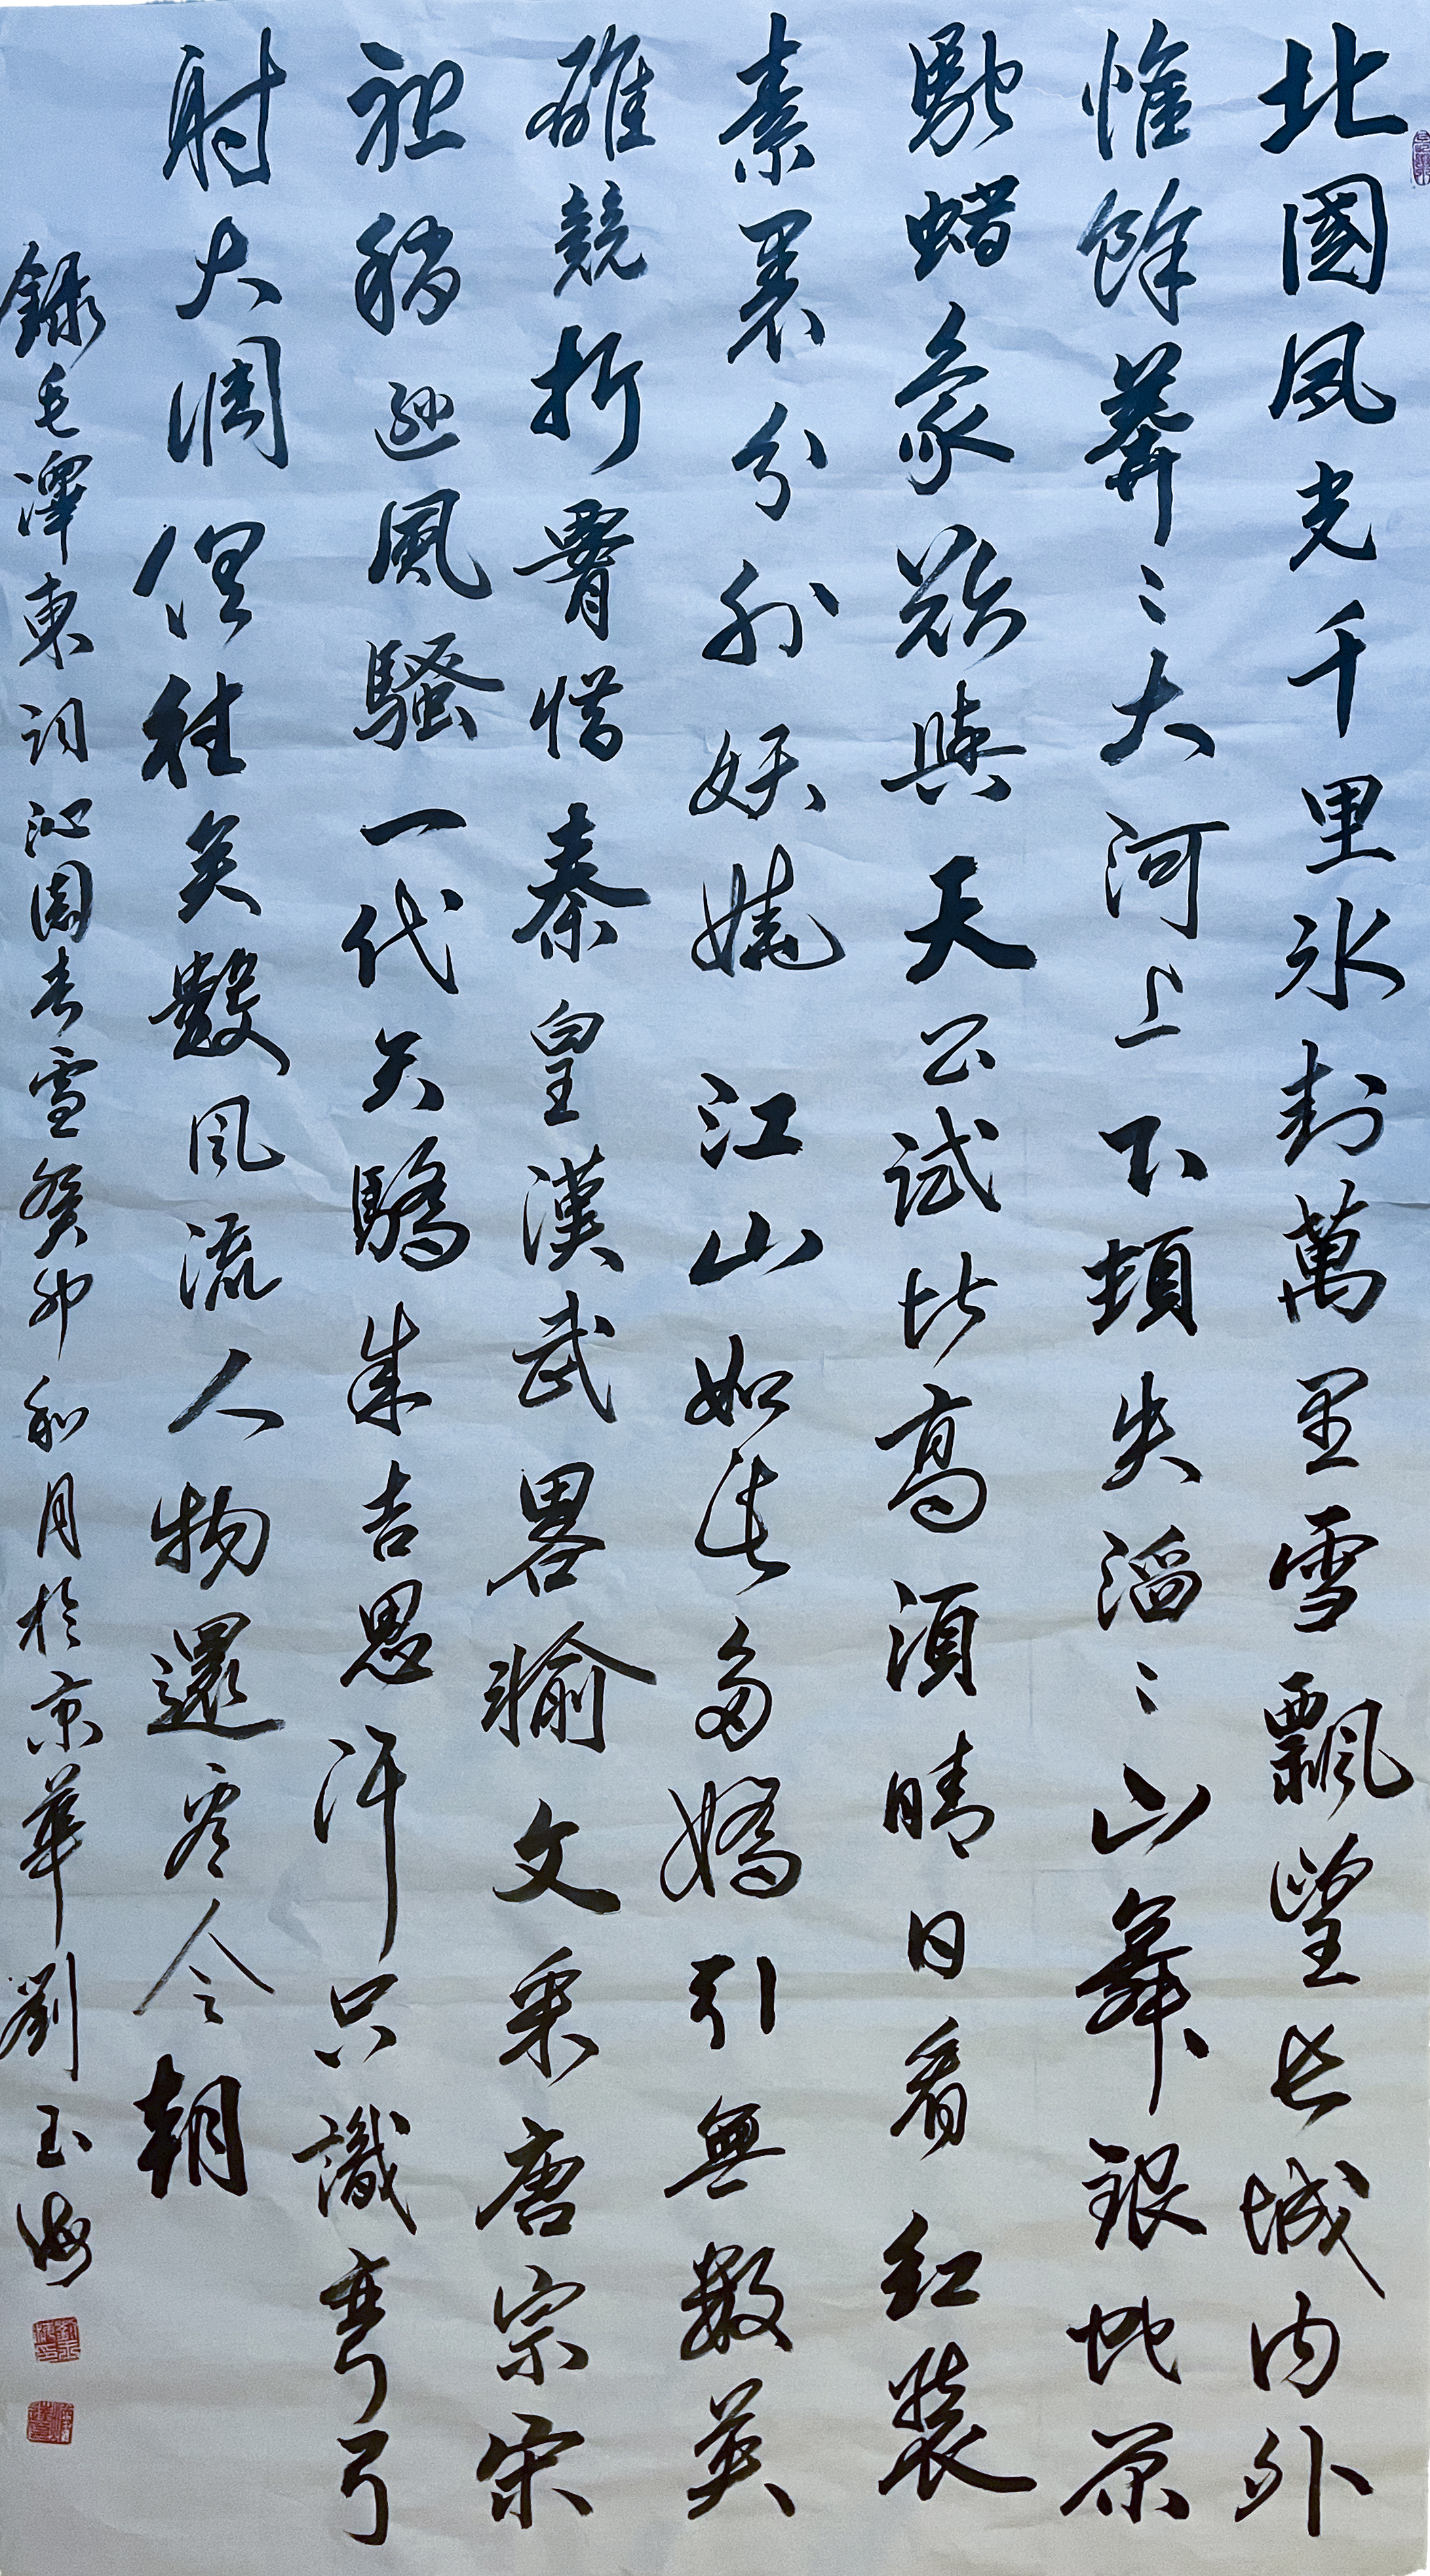 北國風光千里冰封萬里雪飄望長城內外
惟餘莽〻大河上下頓失滔〻山舞銀蛇原
馳蜡象欲與天公試比高須晴日看紅裝
素裹分外妖嬈江山如此多嬌引無數英
雄競折腰惜秦皇漢武畧輸文采唐宗宋
祖稍遜風騷一代天驕成吉思汗只識彎弓
射大凋俱往矣數風流人物還看今朝
錄毛澤東詞沁園春雪癸卯和月於京華劉玉海